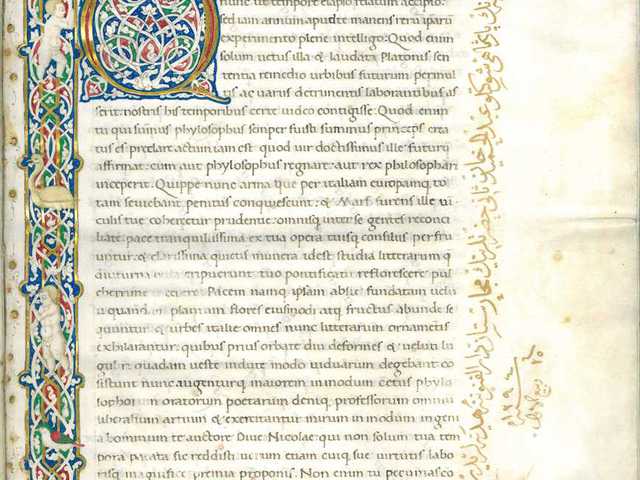 sed iam annum apud te manens reru ipsaru
experimento plene intelligo. Quod enim
solum uetus illa & laudata Platonis sen
tentia remedio urbibus futurum
tis ac uariis detrimentis laborantibus as
serit: nostris his temporibus certe uideo contigisse. Quod enim
tu qui phylosophus semper fuisti summus princeps crea
tus es preclare actum iam est quod uir doctissimus ille futuru
affirmat: cum aut phylosophus regnare: aut rex philosophari
inceperit. Quippe nunc arma que per italiam europamq; to
tam seuiebant penitus conquieuerunt: & Mars furens ille
culis tue cohercetur prudentie: omnisq; inter se gentes reconci
liate pace tranquillissima ex tua opera tuisq; consiliis per fru
untur: & clarissima quietis munera idest studia litterarum q
diuturna eripuerunt tuo pontificatu reflorescere pul
cherrime Pacem namq; ipsam absq; fundatam uelu
ti quandam plantam flores eiusmodi atq; fructus abunde se
quuntur & urbes italie omnes nunc litterarum ornametis
exhilarantur: quibus prius orbate diu deformes & ueluti lu
gubri quadam ueste indute modo uiduarum degebant co
sistunt nunc augenturq; maiorem inmodum cetus phylo
sophorum oratorum poetarum deniq; professorum omniu
liberalium artium & exercitantur mirum inmodum ingeni
a hominum te auctore Diue Nicolae: qui non solum tua tem
pora pacata sic reddis: uerum etiam cuiq; sue uirtutis labo
risq; magnifice premia proponis. Non enim tu pecunias co
شوكتلو عبد الحميد خان ثانى حضرتلرينك مجارستان دار الفنونه هديه